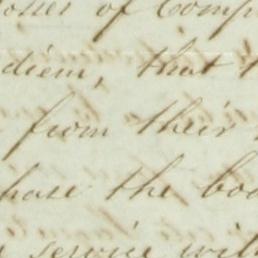 of Comp
diem, that
from their
hase the boo
service wil